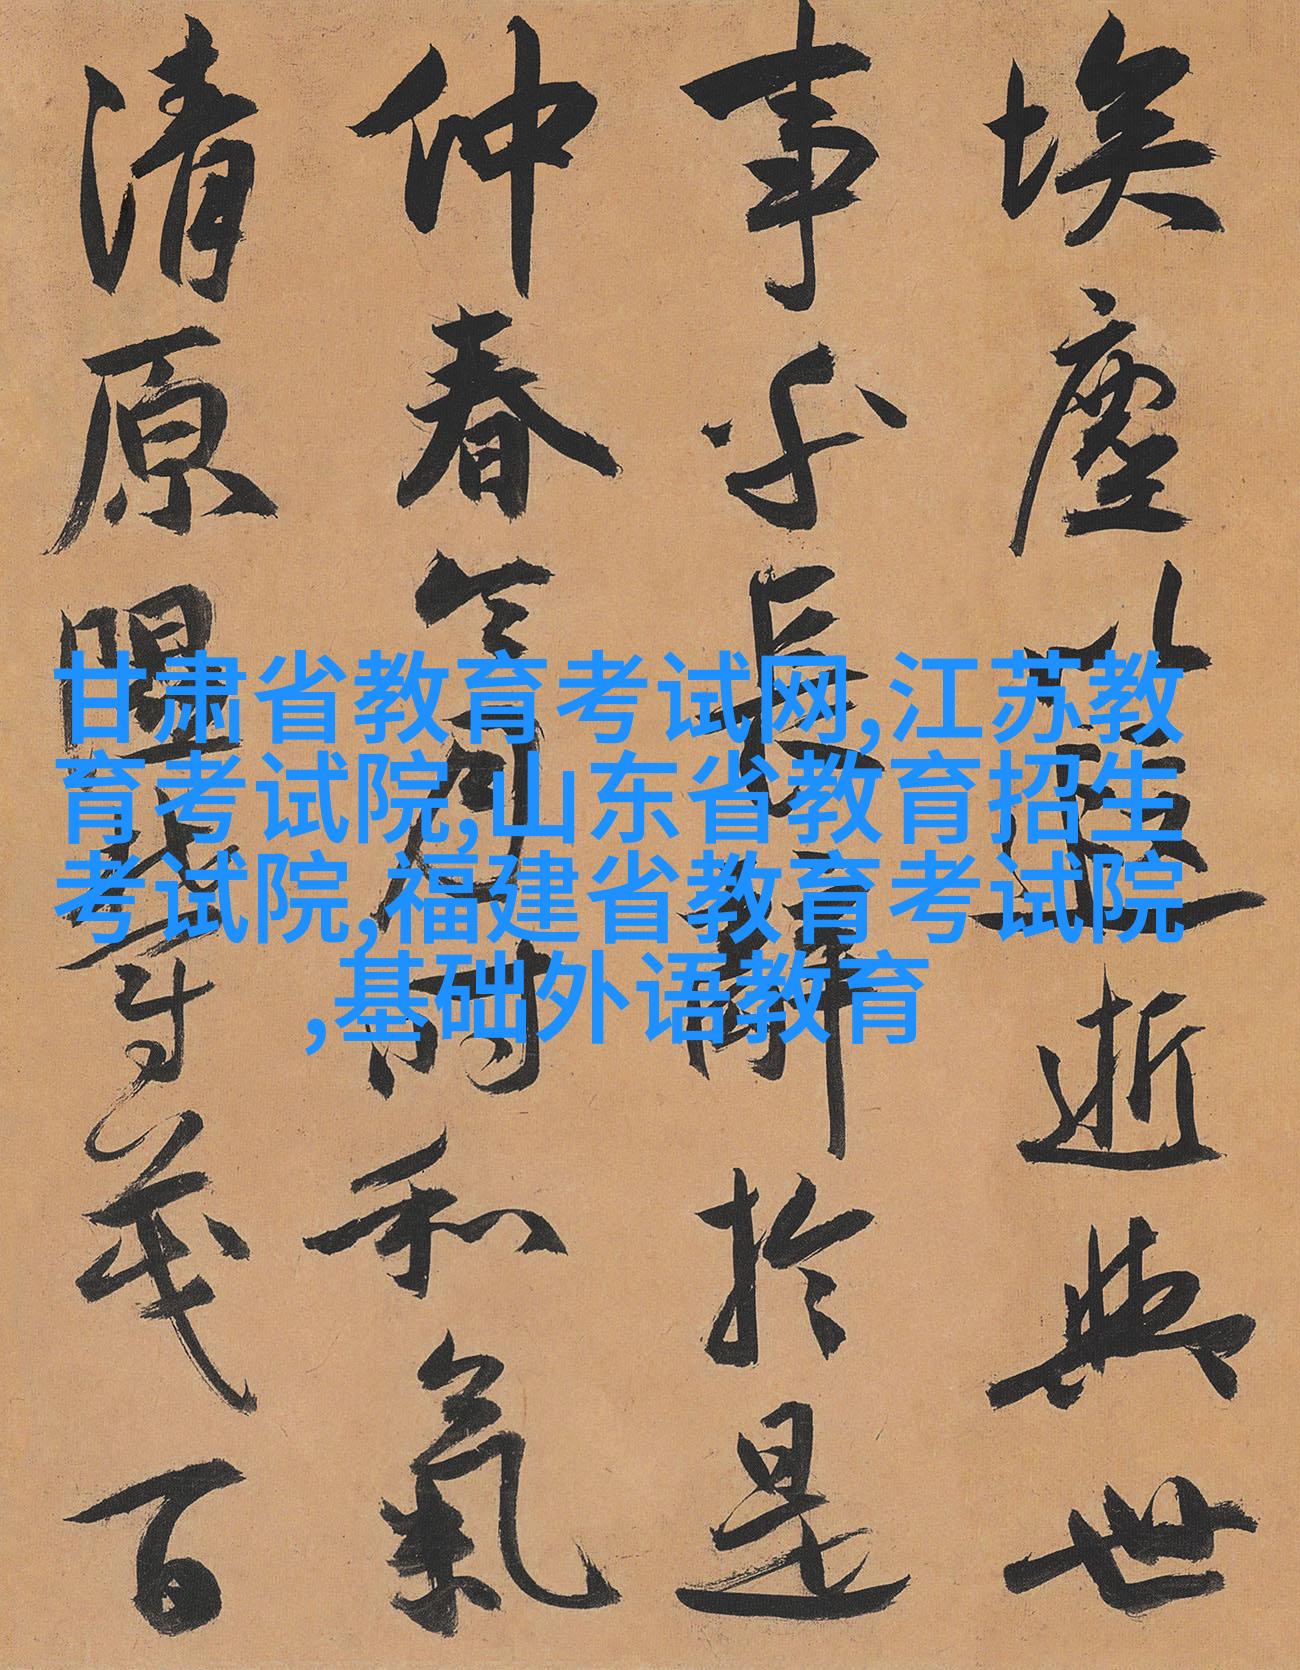 埃塵以遐逝與世
事乎長辭於是
仲春令月時和氣
清原隰鬱茂百
甘肃省教育考试网,江苏教
育考试院,山东省教育招生
考试院,福建省教育考试院
,基础外语教育